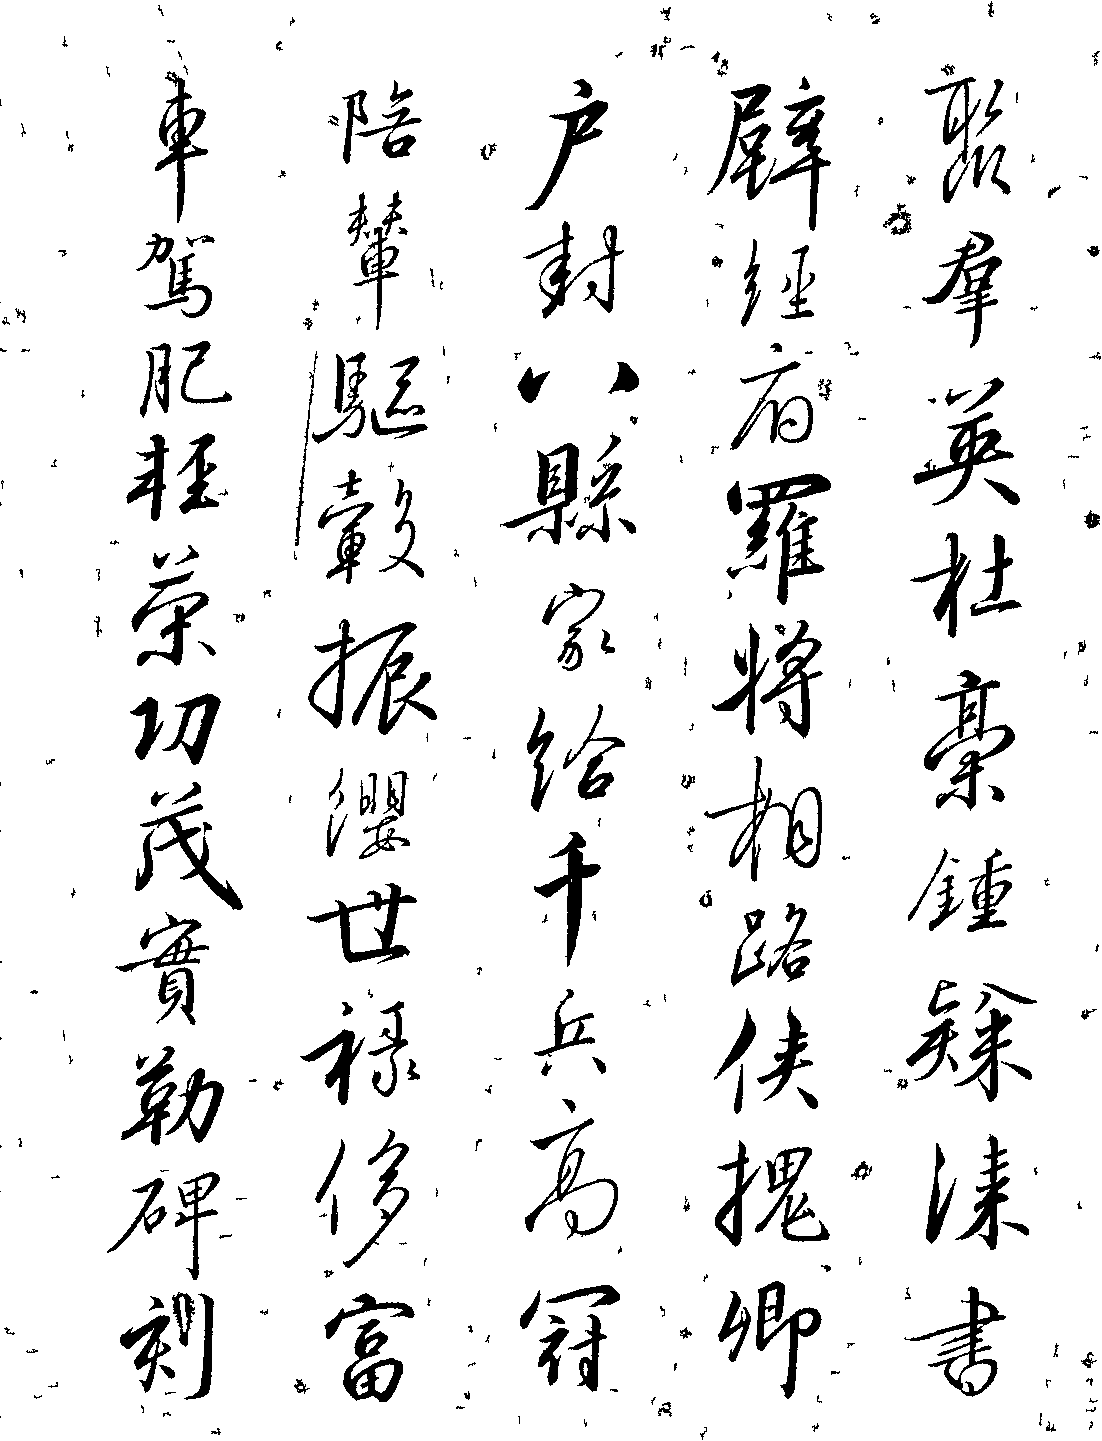 聚羣英杜稾鍾隸漆書
壁經府羅將相路俠槐卿
户封八縣家給千兵高冠
陪輦驅轂振纓世禄侈富
車駕肥輕策功茂實勒碑刻